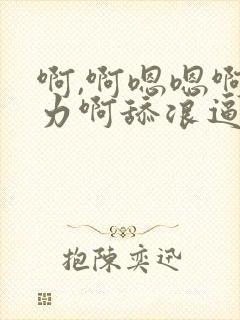 啊,啊嗯嗯啊
力啊舔浪逼
抱陳奕迅